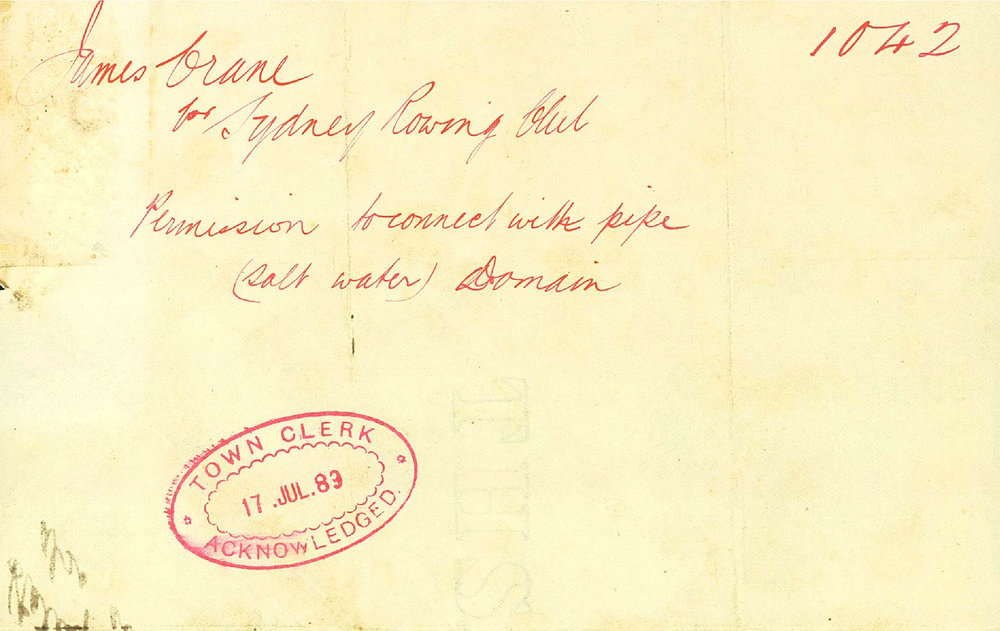 1042
James Crane
for Sydney Rowing Club
Permission to connect with pipe
(salt water) Domain
TOWN CLERK
17.JUL.83
ACKNOWLEDGED.